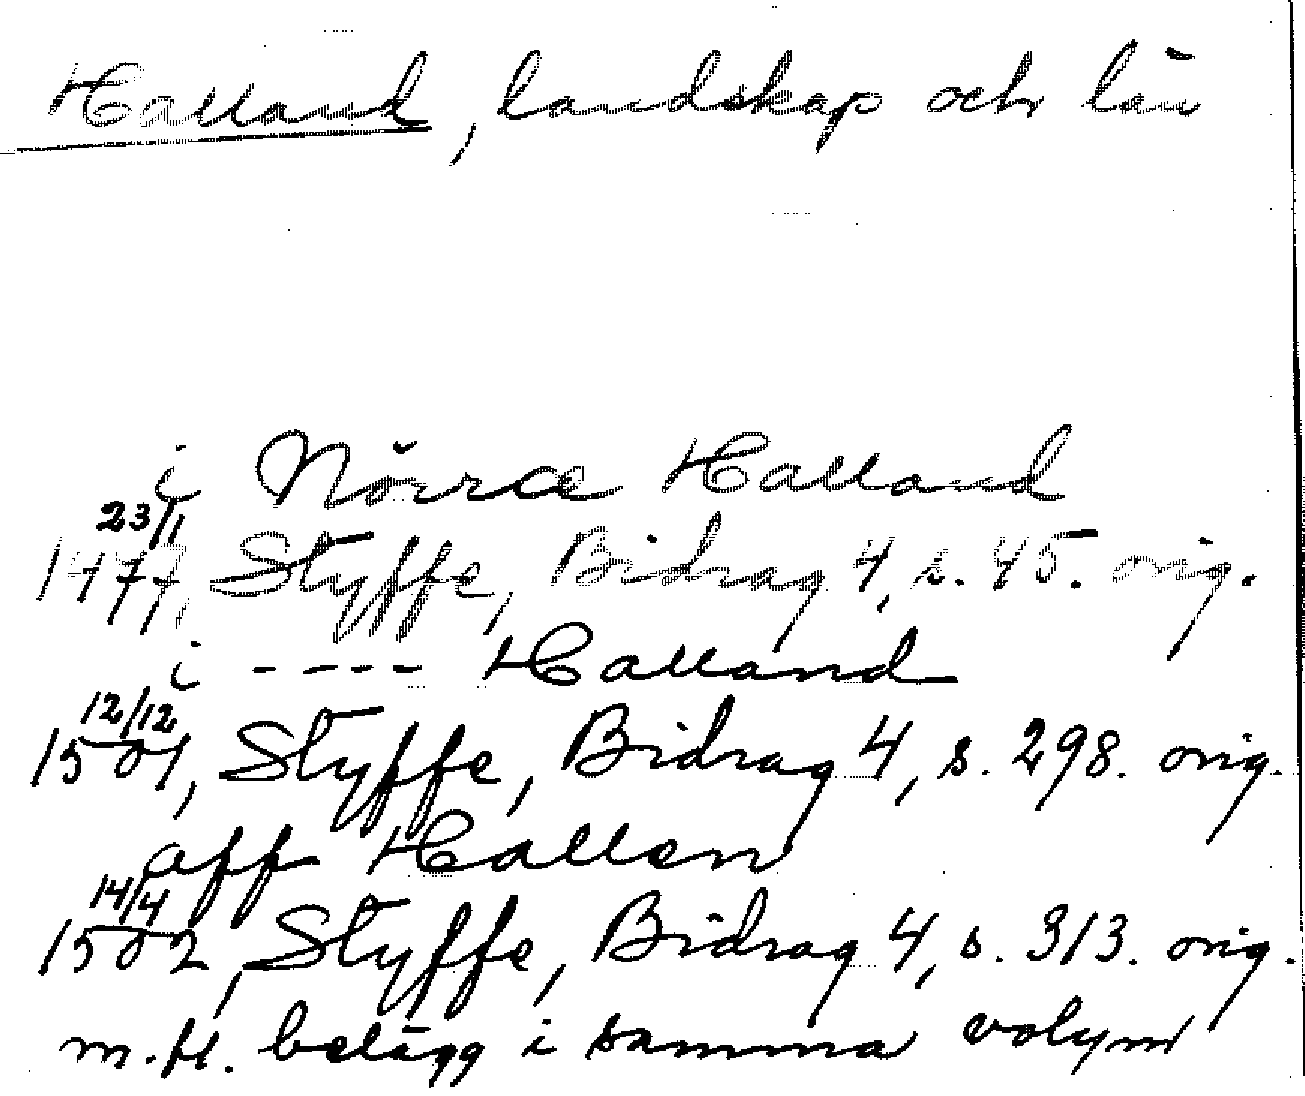 Halland, landskap och län
i Nörræ Halland
23/1
1477, Styffe, Bidrag 4, s. 45. orig.
i ---- Halland
12/12
1501, Styffe, Bidrag 4, s. 298. orig.
aff Hallen
14/4
1502, Styffe, Bidrag 4, s. 313. orig.
m.fl. belägg i samma volym